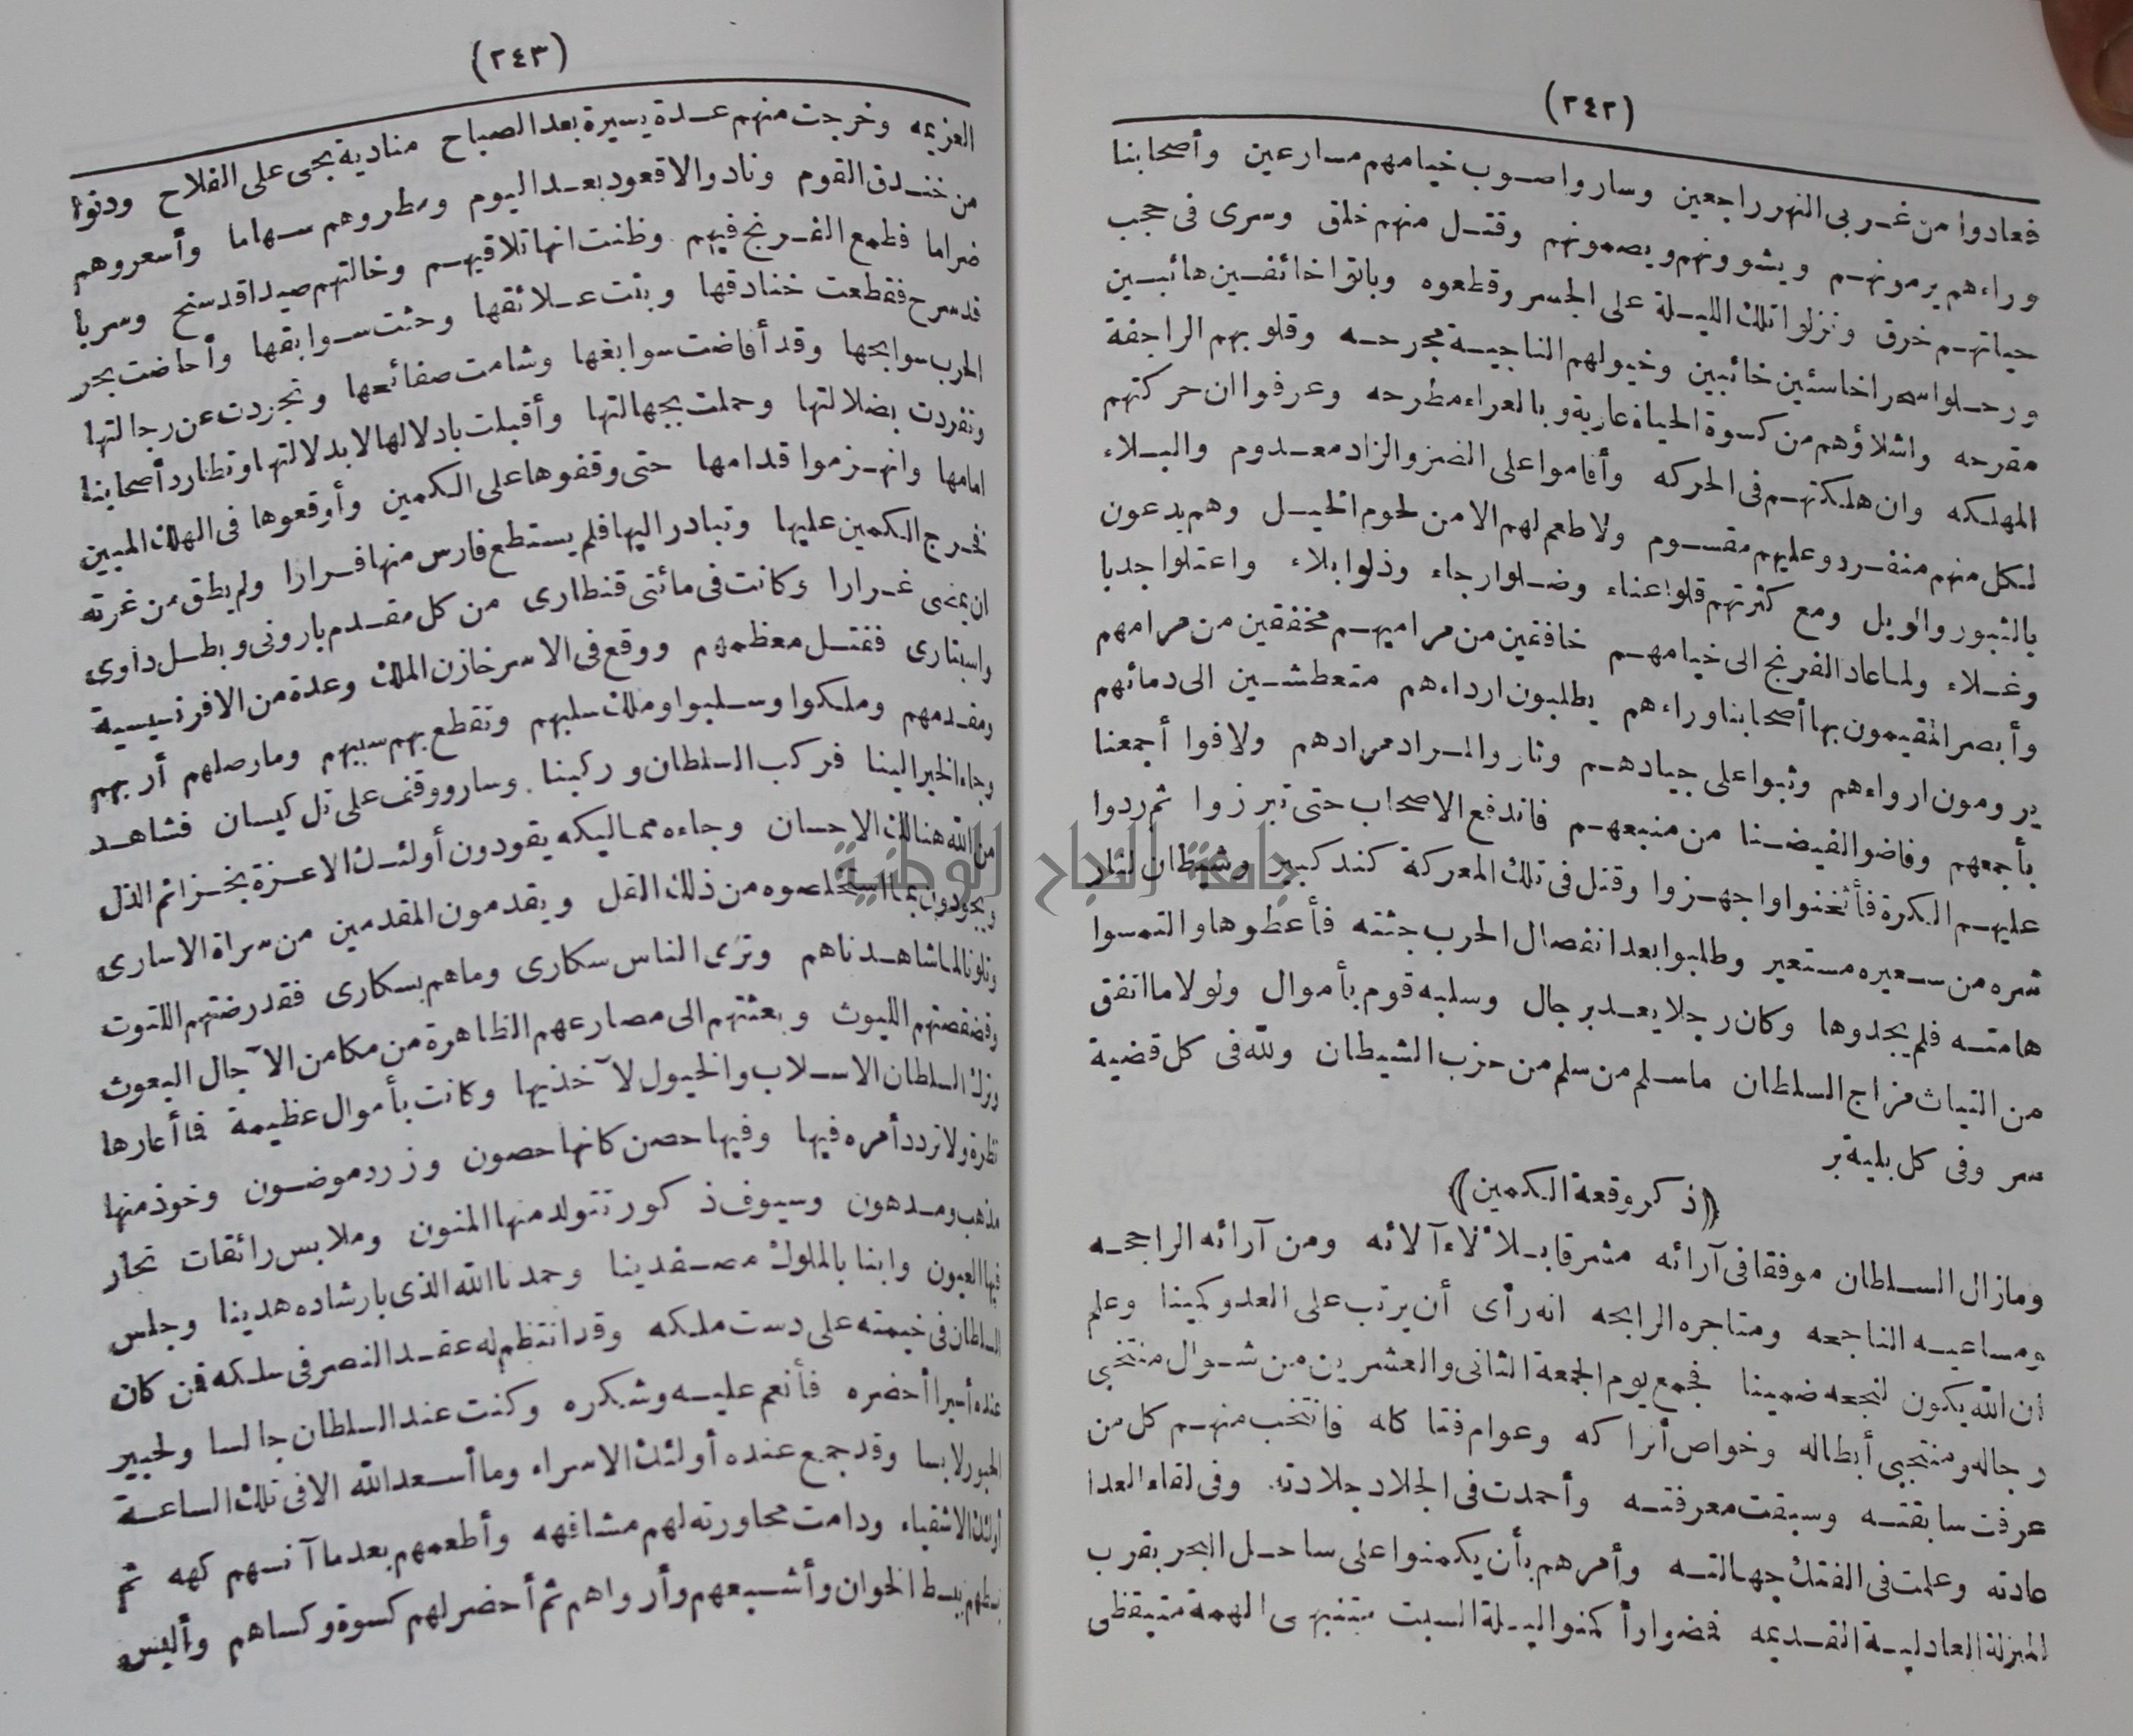 (٢٤٢)
فعادوا من غربى النهر راجعين وساروا صوب خيامهم مسارعين وأصحابنا
وراءهم يرمونهم ويشوونهم ويصمونهم وقتل منهم خلق وسرى فى حجب
حياتهم خرق ونزلوا تلك الليلة على الجسر وقطعوه وباتوا خائفين هائبين
ورحلوا سحرا خاسئين خائبين وخيولهم الناجية مجرحه وقلوبهم الراجفة
مقرحه واشلاؤهم من كسوة الحياة عارية وبالعراء مطرحه وعرفوا ان حركتهم
المهلكه وان هلكتهم فى الحركه وأقاموا على الضر والزاد معدوم والبلاء
لكل منهم منفرد وعليهم مقسوم ولا طعم لهم الا من لحوم الخيل وهم يدعون
بالثبور والويل ومع كثرتهم قلوا غناء وضلوا رجاء وذلوا بلاء واعتلوا جدبا
وغلاء ولما عاد الفرنج الى خيامهم خافقين من مراميهم مخفقين من مرامهم
وأبصر المقيمون بها أصحابنا وراءهم يطلبون ارداءهم متعطشين الى دمائهم
يرومون ارواءهم وثبوا على جيادهم وثاروا المراد مرادهم ولافوا أجمعنا
بأجمعهم وفاضوا لفيضنا من منبعهم فاندفع الاصحاب حتى تبرزوا ثم ردوا
عليهم الكرة فأثخنوا واجهزوا وقتل فى تلك المعركة كند كبير وشيطان لنار
شره من سعيره مستعير وطلبوا بعد انفصال الحرب جثته فأعطوها والتمسوا
هامته فلم يجدوها وكان رجلا يعد برجال وسلبه قوم بأموال ولولا ما اتفق
من التياث مزاج السلطان ما سلم من سلم من حزب الشيطان ولله فى كل قضية
سر وفى كل بلية بر
﴿ذكر وقعة الكمين﴾
وما زال السلطان موفقا فى آرائه مشرقا بلألاء آلائه ومن آرائه الراجحه
ومساعيه الناجحه ومتاجره الرابحه انه رأى أن يرتب على العدو كمينا وعلم
أن الله يكون لنجحه ضمينا فجمع يوم الجمعة الثانى والعشرين من شوال منتخبى
رجاله ومنتجبى أبطاله وخواص أتراكه وعوام فتاكه فانتخب منهم كل من
عرفت سابقته وسبقت معرفته وأحمدت فى الجلاد جلادته وفى لقاء العدا
عادته وعلمت فى الفتك جهالته وأمرهم بأن يكمنوا على ساحل البحر بقرب
المنزلة العادلية القديمه فمضوا وأكمنوا ليلة السبت متنبهى الهمة متيقظى
(٢٤٣)
العزيمه وخرجت منهم عدة يسيرة بعد الصباح منادية بحى على الفلاح ودنوا
من خندق القوم ونادوا لا قعود بعد اليوم ومطروهم سهاما وأسعروهم
ضراما فطمع الفرنج فيهم وظنت انها تلاقيهم وخالتهم صيدا قد سنح وسربا
قد سرح فقطعت خنادقها وبتت علائقها وحثت سوابقها وأخاضت بحر
الحرب سوابحها وقد أفاضت سوابغها وشامت صفائحها وتجردت عن رجالتها
وتفردت بضلالتها وحملت بجهالتها وأقبلت بادلالها لا بدلالتها وتطارد أصحابنا
امامها وانهزموا قدامها حتى وقفوها على الكمين وأوقعوها فى الهلك المبين
فخرج الكمين عليها وتبادر اليها فلم يستطع فارس منها فرارا ولم يطق من غرته
ان يمضى غرارا وكانت فى مائتى قنطارى من كل مقدم بارونى وبطل داوى
واسبتارى فقتل معظمهم ووقع فى الاسر خازن الملك وعدة من الافرنسيسية
ومقدمهم وملكوا وسلبوا وملك سلبهم وتقطع بهم سببهم وما وصلهم أربهم
وجاء الخبر الينا فركب السلطان وركبنا وسار ووقف على تل كيسان فشاهد
من الله هنالك الاحسان وجاءه مماليكه يقودون أولئك الاعزة بخزائم الذل
ويجودون بما استخلصوه من ذلك القل ويقدمون المقدمين من سراة الاسارى
وتلونا لما شاهدناهم وترى الناس سكارى وما هم بسكارى فقد رضتهم اللتوت
وقضقضتهم الليوث وبعثتهم الى مصارعهم الظاهرة من مكامن الآجال البعوث
وترك السلطان الاسلاب والخيول لآخذيها وكانت بأموال عظيمة فما أعارها
نظرة ولا تردد أمره فيها وفيها حصن كانها حصون وزرد موضون وخوذ منها
مذهب ومدهون وسيوف ذكور تتولد منها المنون وملابس رائقات تحار
فيها العيون وابنا بالملوك مصفدينا وحمدنا الله الذى بارشاده هدينا وجلس
السلطان فى خيمته على دست ملكه وقد انتظم له عقد النصر فى سلكه فمن كان
عنده أسيرا أحضره فأنعم عليه وشكره وكنت عند السلطان جالسا ولحبير
الحبور لابسا وقد جمع عنده أولئك الاسراء وما أسعد الله الا فى تلك الساعة
أولئك الاشقياء ودامت محاورته لهم مشافهه وأطعمهم بعدما آنسهم كهه ثم
بسطهم ببسط الخوان وأشبعهم وأرواهم ثم أحضر لهم كسوة وكساهم وألبس
جامعة النجاح الوطنية